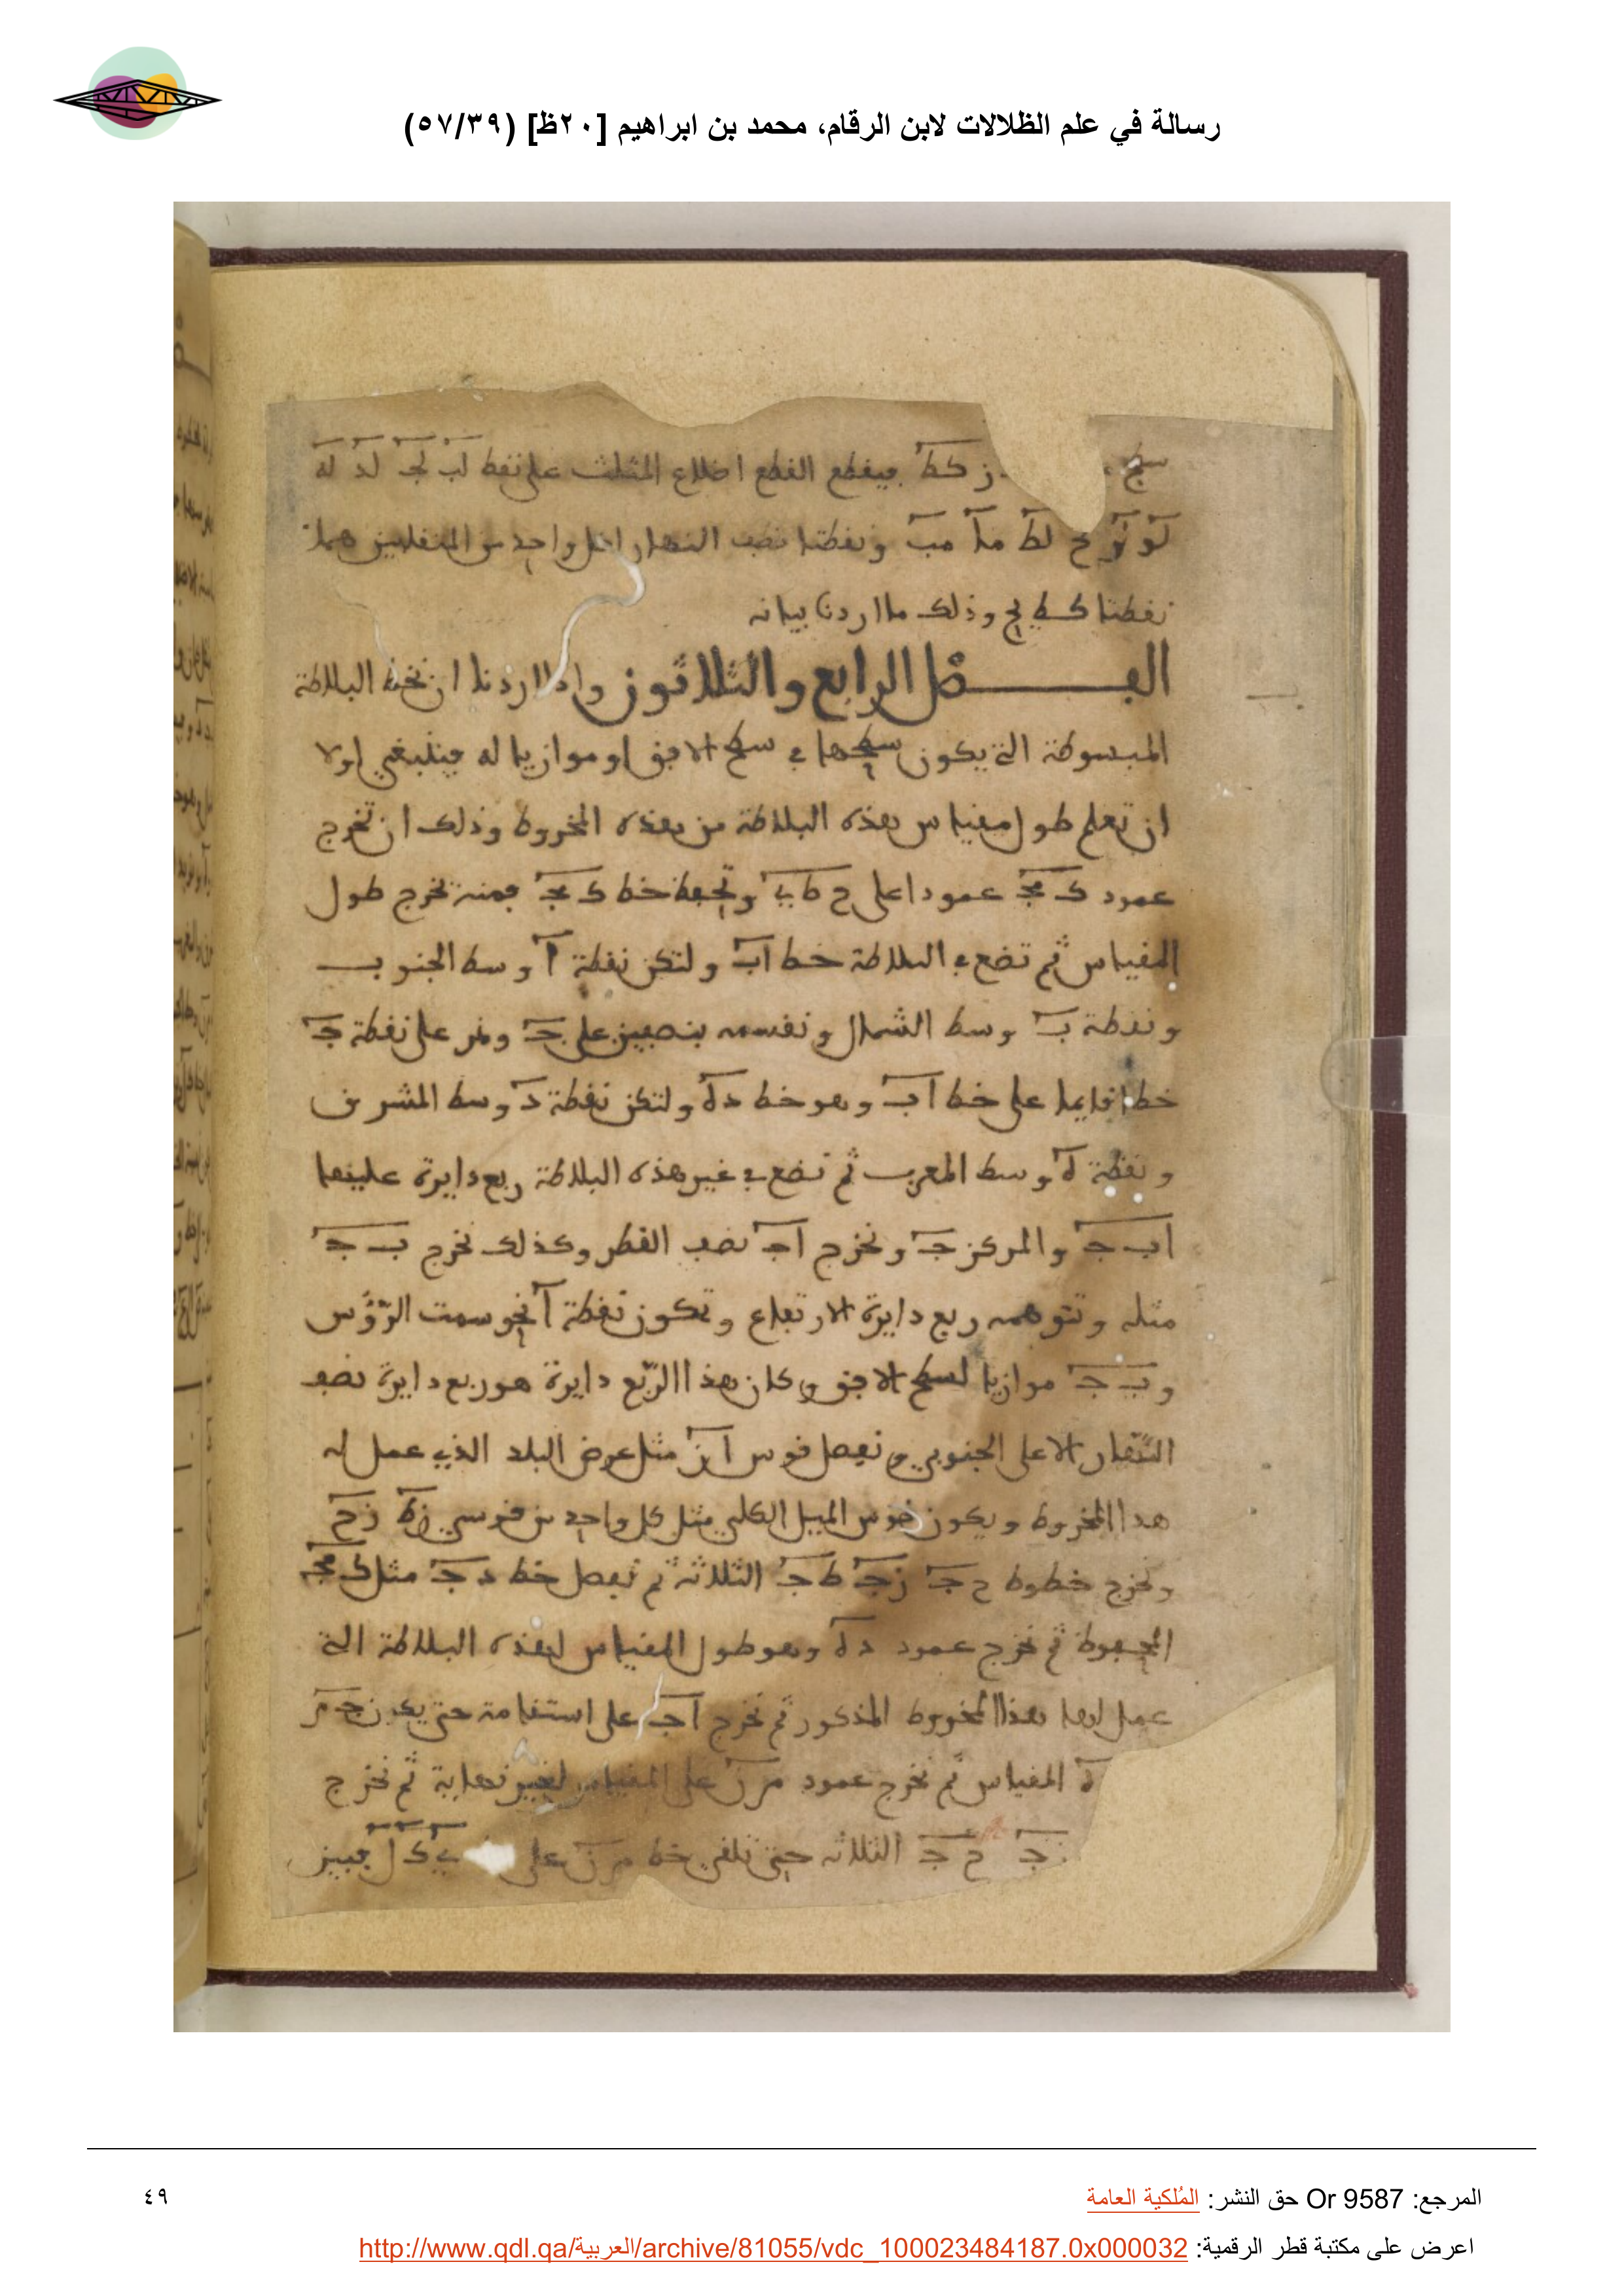 رسالة في علم الظلالات لابن الرقام، محمد بن ابراهيم [٢٠ظ] (٥٧/٣٩)
سطح ز كط فيقطع القطع اضلاع المثلث على نقط لب لج لد له
لو لز لح لط ما مب ونقطتا نصف النهار لكل واحد من المنقلبين هما
نقطتا كط يح وذلك ما اردنا بيانه
الفصل الرابع والثلاثون واذا اردنا ان نخط البلاطة
المبسوطة التي يكون سطحها في سطح الافق او موازيا له فينبغي اولا
ان تعلم طول مقياس هذه البلاطة من هذه المخروط وذلك ان تخرج
عمود ك مج عمودا على ح ط ي وتحفظ خط ك مج فمنه تخرج طول
المقياس ثم تضع في البلاطة خط اب ولتكن نقطة ا وسط الجنوب
ونقطة ب وسط الشمال ونقسمه بنصفين على ج ونمر على نقطة ج
خطا قايما على خط اب وهو خط ده ولتكن نقطة د وسط المشرق
ونقطة ه وسط المغرب ثم نضع في غير هذه البلاطة ربع دايرة عليها
اب ج والمركز ج ونخرج اج نصف القطر وكذلك نخرج ب ج
مثله ونتوهمه ربع دايرة الارتفاع وتكون نقطة ا نحو سمت الرؤس
وب ج موازيا لسطح الافق وكان هذا الربع دايرة هو ربع دايرة نصف
النهار الاعلى الجنوبي ونفصل قوس از مثل عرض البلد الذي عمل له
هذا المخروط ويكون قوس الميل الكلي مثل كل واحد من قوسي زط زح
ونخرج خطوط ح ج زج ط ج الثلاثة ثم نفصل خط د ج مثل ك مج
المحفوظ ثم نخرج عمود ده وهو طول المقياس لهذه البلاطة التي
عمل لها هذا المخروط المذكور ثم نخرج اج على استقامة حتى يكون ج م
ه المقياس ثم نخرج عمود م ن على المقياس لغير نهاية ثم نخرج
ز ج ح ج الثلاثة حتى تلقى خط م ن على ي ك ل فبين
المرجع: Or 9587 حق النشر: المُلكية العامة
٤٩
اعرض على مكتبة قطر الرقمية: http://www.qdl.qa/العربية/archive/81055/vdc_100023484187.0x000032